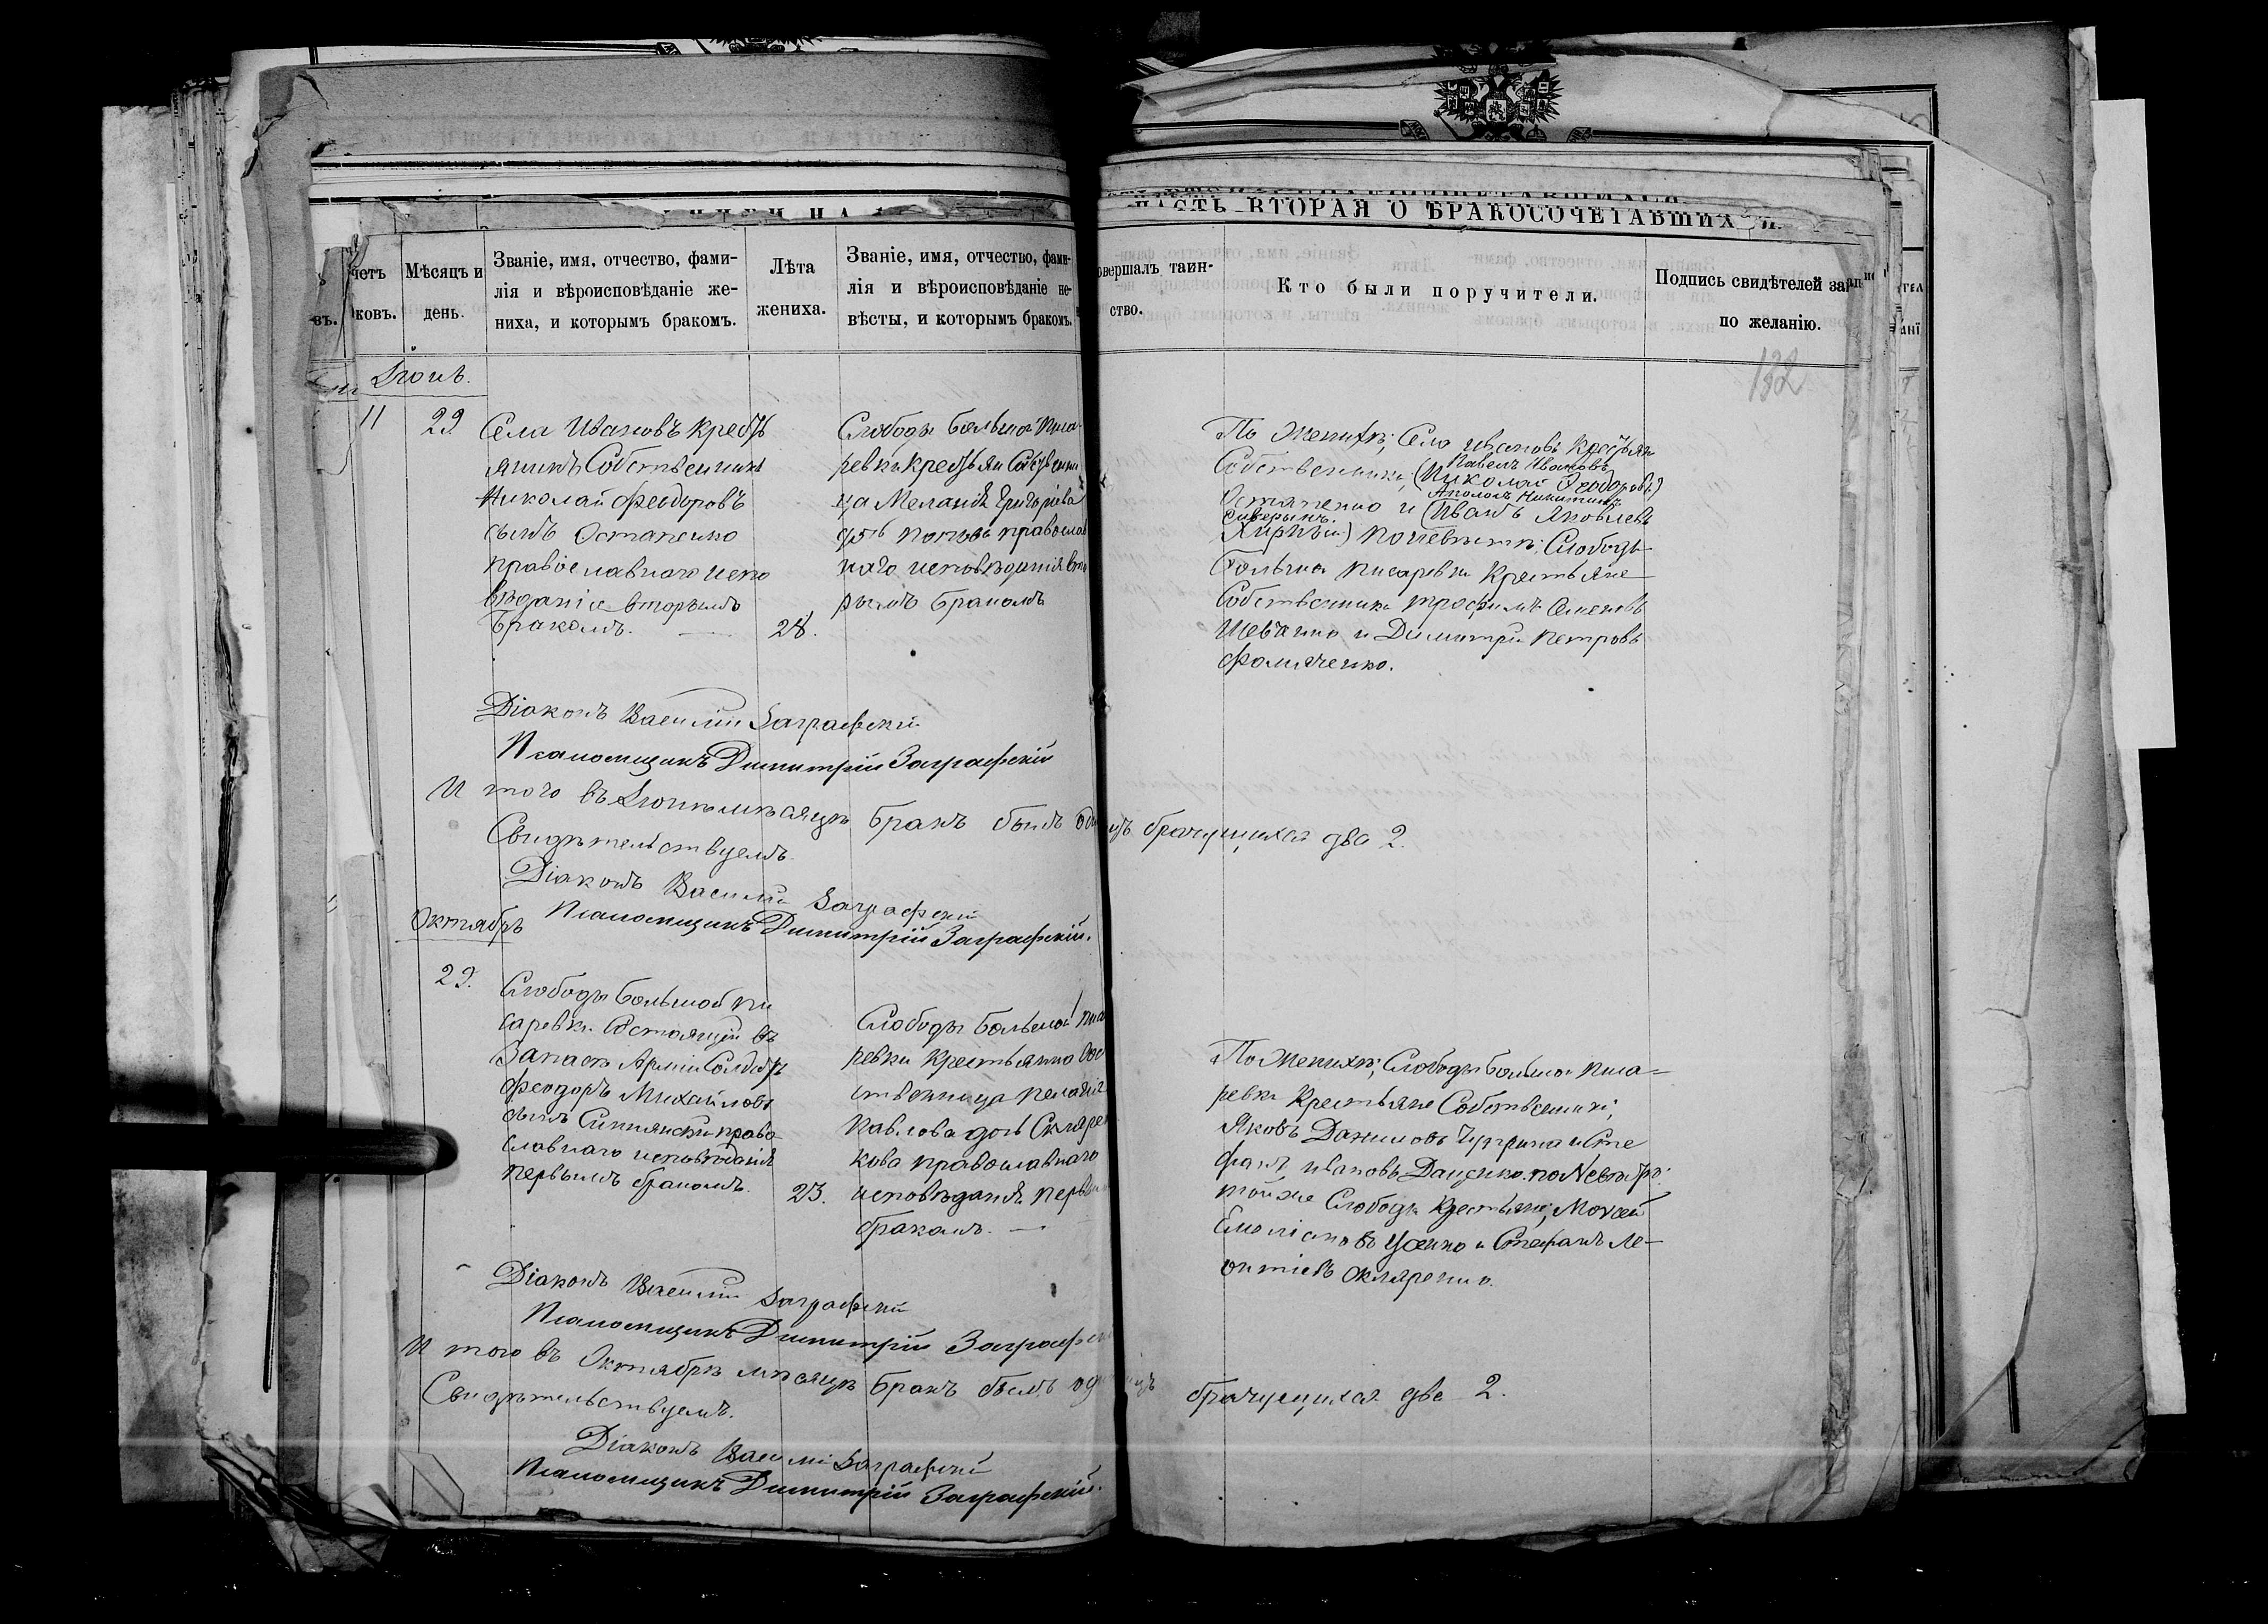 ЧАСТЬ ВТОРАЯ О БРАКОСОЧЕТАВШИХСЯ
Мѣсяцъ и
день.
Званіе, имя, отчество, фами-
лія и вѣроисповѣданіе же-
ниха, и которымъ бракомъ.
Лѣта
жениха.
Званіе, имя, отчество, фами-
лія и вѣроисповѣданіе не-
вѣсты, и которымъ бракомъ.
овершалъ таин-
ство.
Кто были поручители.
Подпись свидѣтелей
по желанію.
132
Іюнь.
11
29
Села Ивановъ Кресть
янинъ Собственникъ
Николай Феодоровъ
сынъ Остапенко
православнаго испо
вѣданія вторымъ
бракомъ.
28.
Слободы Большой Писа-
ревки Крестьян Собствени
ца Меланія Григорьева
православ
наго исповѣданія вто
рымъ бракомъ
По Женихѣ; Села Ивановъ Крестьян
Павелъ Ивановъ
Собственники, (Николай Феодоровъ)
Никитинъ
Остапенко и (Иванъ Яковлевъ
По невѣстѣ; Слободы
Большой Писаревки Крестьяне
Собственники Трофимъ Семеновъ
Шевченко и Димитрій Петровъ
Фомиченко.
Діаконъ Василій Заграфскій
Псаломщикъ Димитрій Заграфскій
И того въ Іюнѣ мѣсяцѣ бракъ былъ одинъ брачущихся два 2.
Свидѣтельствуемъ
Діаконъ Василій Заграфскій
Псаломщикъ Димитрій Заграфскій.
Октябрь
29.
Слободы Большой Пи
саревки Состоящій въ
Запасѣ Арміи Солдатъ
Феодоръ Михайловъ
сынъ право
славнаго исповѣданія
первымъ бракомъ.
23.
Слободы Большой Писа
ревки Крестьянка Соб
ственница Пелагія
Павлова дочь Скляре
кова православнаго
исповѣданія первым
бракомъ.
По Женихѣ; Слободы Большой Писа-
ревки Крестьяне Собственники;
Яковъ Даниловъ и Сте
фанъ Ивановъ Даценко. по Невѣстѣ:
той же Слободы Крестьяне; Моисей
Емеліановъ Усенко и Стефанъ Ле-
онтіевъ Скляренко.
Діаконъ Василій Заграфскій
Псаломщикъ Димитрій Заграфскій
И того въ Октябрѣ мѣсяцѣ бракъ былъ одинъ брачущихся два 2.
Свидѣтельствуемъ.
Діаконъ Василій Заграфскій
Псаломщикъ Димитрій Заграфскій.